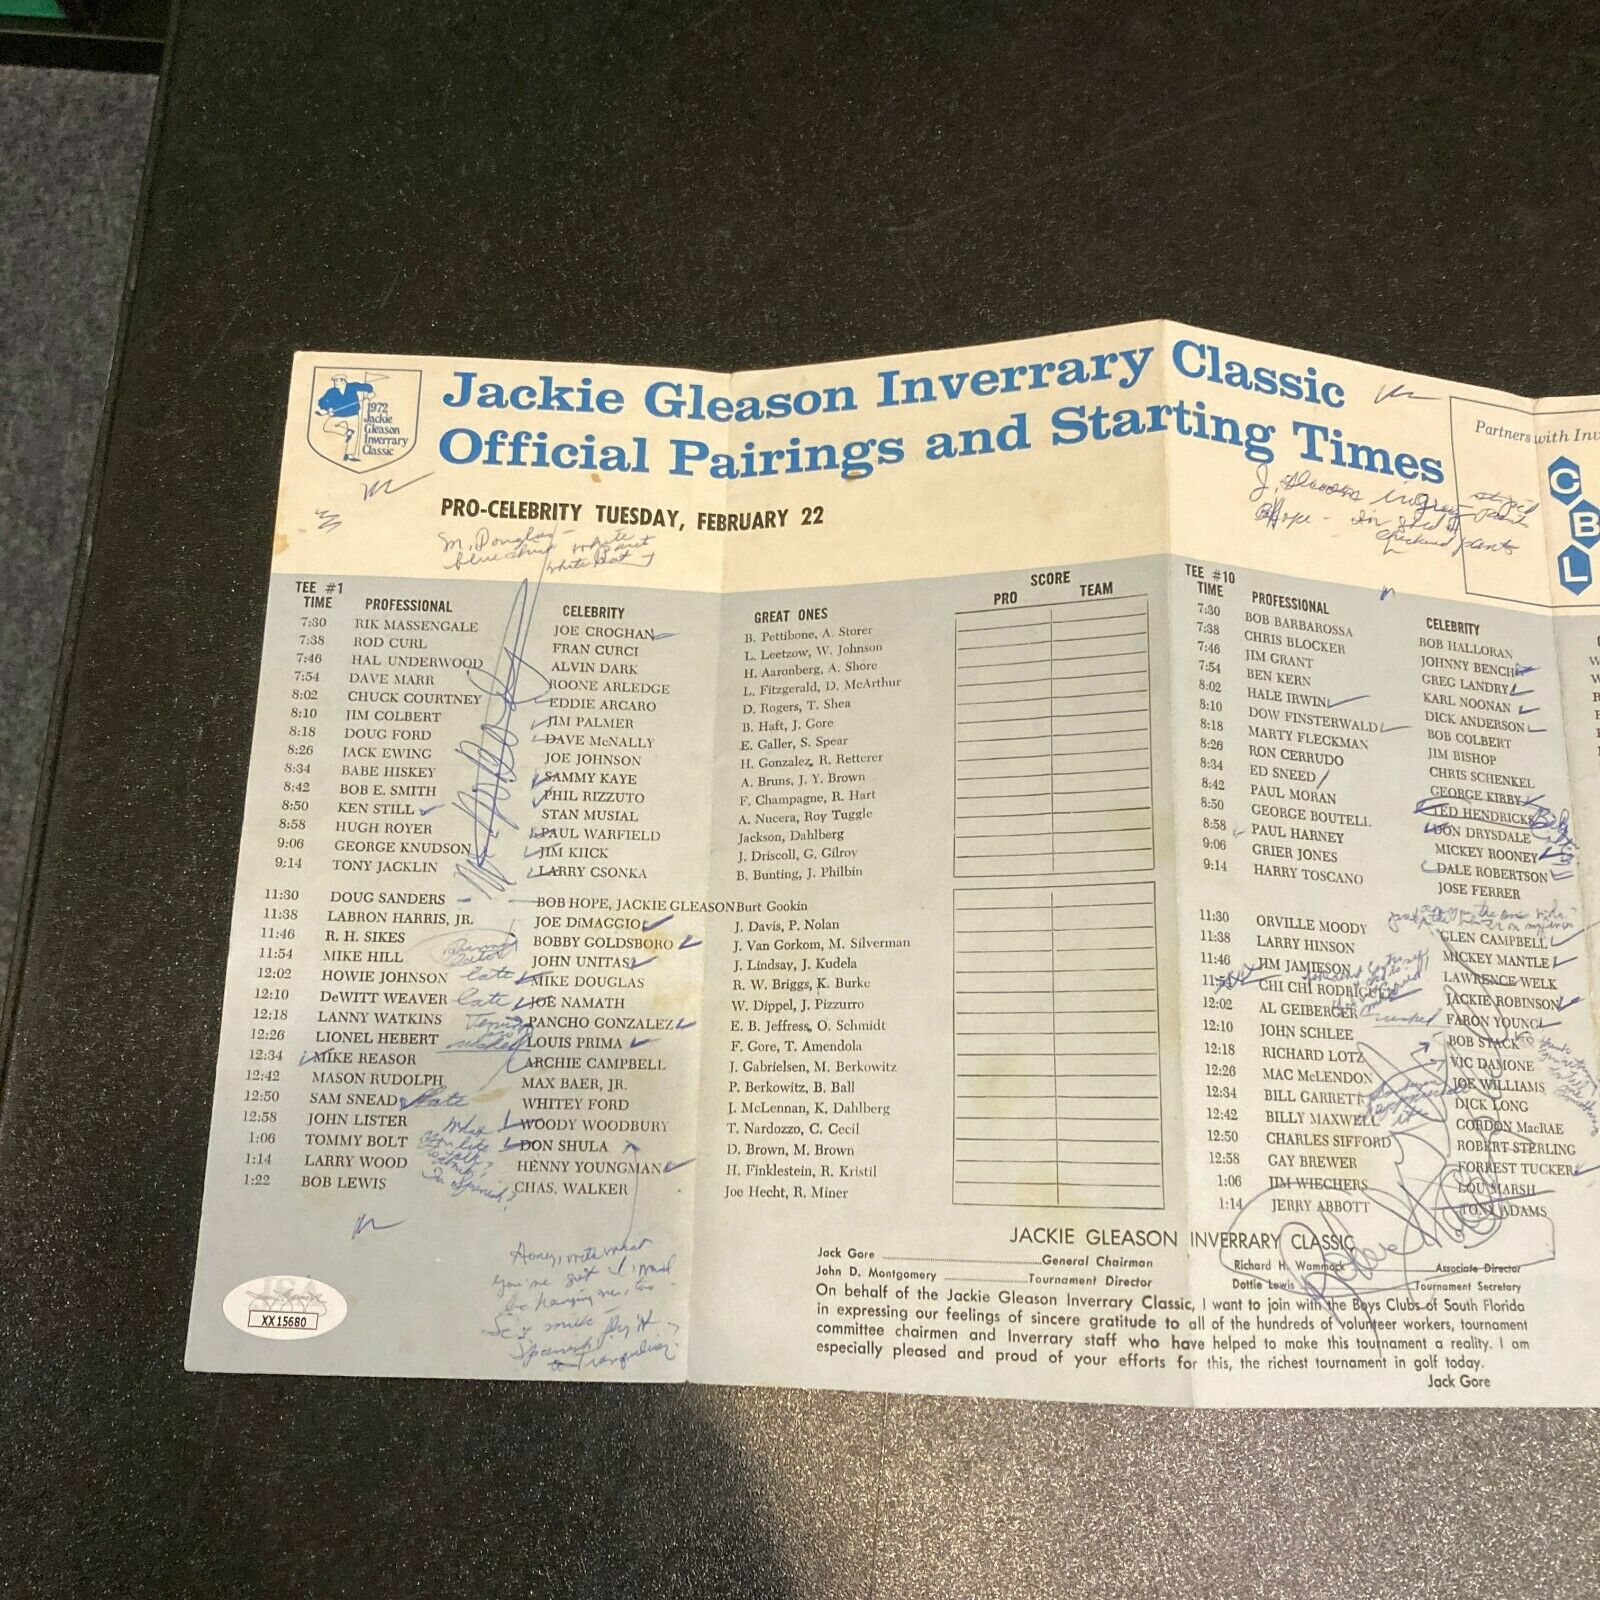 1972
Jackie
Gleason
Inverrary
Classic
Jackie Gleason Inverrary Classic
Official Pairings and Starting Times
PRO-CELEBRITY TUESDAY, FEBRUARY 22
Partners with Inv
C
B
L
M. Douglas -
blue shirt white
white Hat
J. Gleason in gray striped pants
B Hope - in
checkered pants
TEE #1
TIME PROFESSIONAL CELEBRITY
7:30 RIK MASSENGALE JOE CROGHAN
7:38 ROD CURL FRAN CURCI
7:46 HAL UNDERWOOD ALVIN DARK
7:54 DAVE MARR ROONE ARLEDGE
8:02 CHUCK COURTNEY EDDIE ARCARO
8:10 JIM COLBERT JIM PALMER
8:18 DOUG FORD DAVE McNALLY
8:26 JACK EWING JOE JOHNSON
8:34 BABE HISKEY SAMMY KAYE
8:42 BOB E. SMITH PHIL RIZZUTO
8:50 KEN STILL STAN MUSIAL
8:58 HUGH ROYER PAUL WARFIELD
9:06 GEORGE KNUDSON JIM KIICK
9:14 TONY JACKLIN LARRY CSONKA
11:30 DOUG SANDERS BOB HOPE, JACKIE GLEASON
11:38 LABRON HARRIS, JR. JOE DiMAGGIO
11:46 R. H. SIKES BOBBY GOLDSBORO
11:54 MIKE HILL JOHN UNITAS
12:02 HOWIE JOHNSON late MIKE DOUGLAS
12:10 DeWITT WEAVER late JOE NAMATH
12:18 LANNY WATKINS PANCHO GONZALEZ
12:26 LIONEL HEBERT LOUIS PRIMA
12:34 MIKE REASOR ARCHIE CAMPBELL
12:42 MASON RUDOLPH MAX BAER, JR.
12:50 SAM SNEAD late WHITEY FORD
12:58 JOHN LISTER WOODY WOODBURY
1:06 TOMMY BOLT DON SHULA
1:14 LARRY WOOD HENNY YOUNGMAN
1:22 BOB LEWIS CHAS. WALKER
In Spanish?
Honey, write what
you've got
be hanging me, too
Spanish
XX15680
GREAT ONES
SCORE
PRO TEAM
B. Pettibone, A. Storer
L. Leetzow, W. Johnson
H. Aaronberg, A. Shore
L. Fitzgerald, D. McArthur
D. Rogers, T. Shea
B. Haft, J. Gore
E. Galler, S. Spear
H. Gonzalez, R. Retterer
A. Bruns, J. Y. Brown
F. Champagne, R. Hart
A. Nucera, Roy Tuggle
Jackson, Dahlberg
J. Driscoll, G. Gilroy
B. Bunting, J. Philbin
Burt Gookin
J. Davis, P. Nolan
J. Van Gorkom, M. Silverman
J. Lindsay, J. Kudela
R. W. Briggs, K. Burke
W. Dippel, J. Pizzurro
E. B. Jeffress, O. Schmidt
F. Gore, T. Amendola
J. Gabrielsen, M. Berkowitz
P. Berkowitz, B. Ball
J. McLennan, K. Dahlberg
T. Nardozzo, C. Cecil
D. Brown, M. Brown
H. Finklestein, R. Kristil
Joe Hecht, R. Miner
TEE #10
TIME PROFESSIONAL CELEBRITY
7:30 BOB BARBAROSSA BOB HALLORAN
7:38 CHRIS BLOCKER JOHNNY BENCH
7:46 JIM GRANT GREG LANDRY
7:54 BEN KERN KARL NOONAN
8:02 HALE IRWIN DICK ANDERSON
8:10 DOW FINSTERWALD BOB COLBERT
8:18 MARTY FLECKMAN JIM BISHOP
8:26 RON CERRUDO CHRIS SCHENKEL
8:34 ED SNEED GEORGE KIRBY
8:42 PAUL MORAN TED HENDRICKS
8:50 GEORGE BOUTELL DON DRYSDALE
8:58 PAUL HARNEY MICKEY ROONEY
9:06 GRIER JONES DALE ROBERTSON
9:14 HARRY TOSCANO JOSE FERRER
11:30 ORVILLE MOODY GLEN CAMPBELL
11:38 LARRY HINSON MICKEY MANTLE
11:46 JIM JAMIESON LAWRENCE WELK
11:54 CHI CHI RODRIGUEZ JACKIE ROBINSON
12:02 AL GEIBERGER FARON YOUNG
12:10 JOHN SCHLEE BOB STACK
12:18 RICHARD LOTZ VIC DAMONE
12:26 MAC McLENDON JOE WILLIAMS
12:34 BILL GARRETT DICK LONG
12:42 BILLY MAXWELL GORDON MacRAE
12:50 CHARLES SIFFORD ROBERT STERLING
12:58 GAY BREWER FORREST TUCKER
1:06 JIM WIECHERS LOU MARSH
1:14 JERRY ABBOTT TONY ADAMS
JACKIE GLEASON INVERRARY CLASSIC
Jack Gore General Chairman Richard H. Wammock Associate Director
John D. Montgomery Tournament Director Dottie Lewis Tournament Secretary
On behalf of the Jackie Gleason Inverrary Classic, I want to join with the Boys Clubs of South Florida
in expressing our feelings of sincere gratitude to all of the hundreds of volunteer workers, tournament
committee chairmen and Inverrary staff who have helped to make this tournament a reality. I am
especially pleased and proud of your efforts for this, the richest tournament in golf today.
Jack Gore